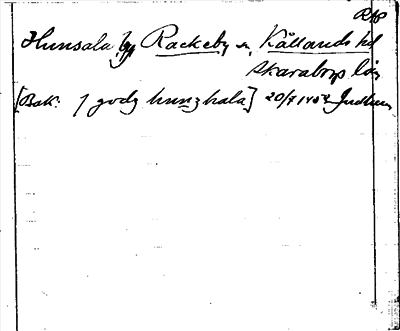 RAP
Hunsala by Rackeby sn, Kållands hd
Skaraborgs län
[Bak: J godz hunzhala] 20/7 1452